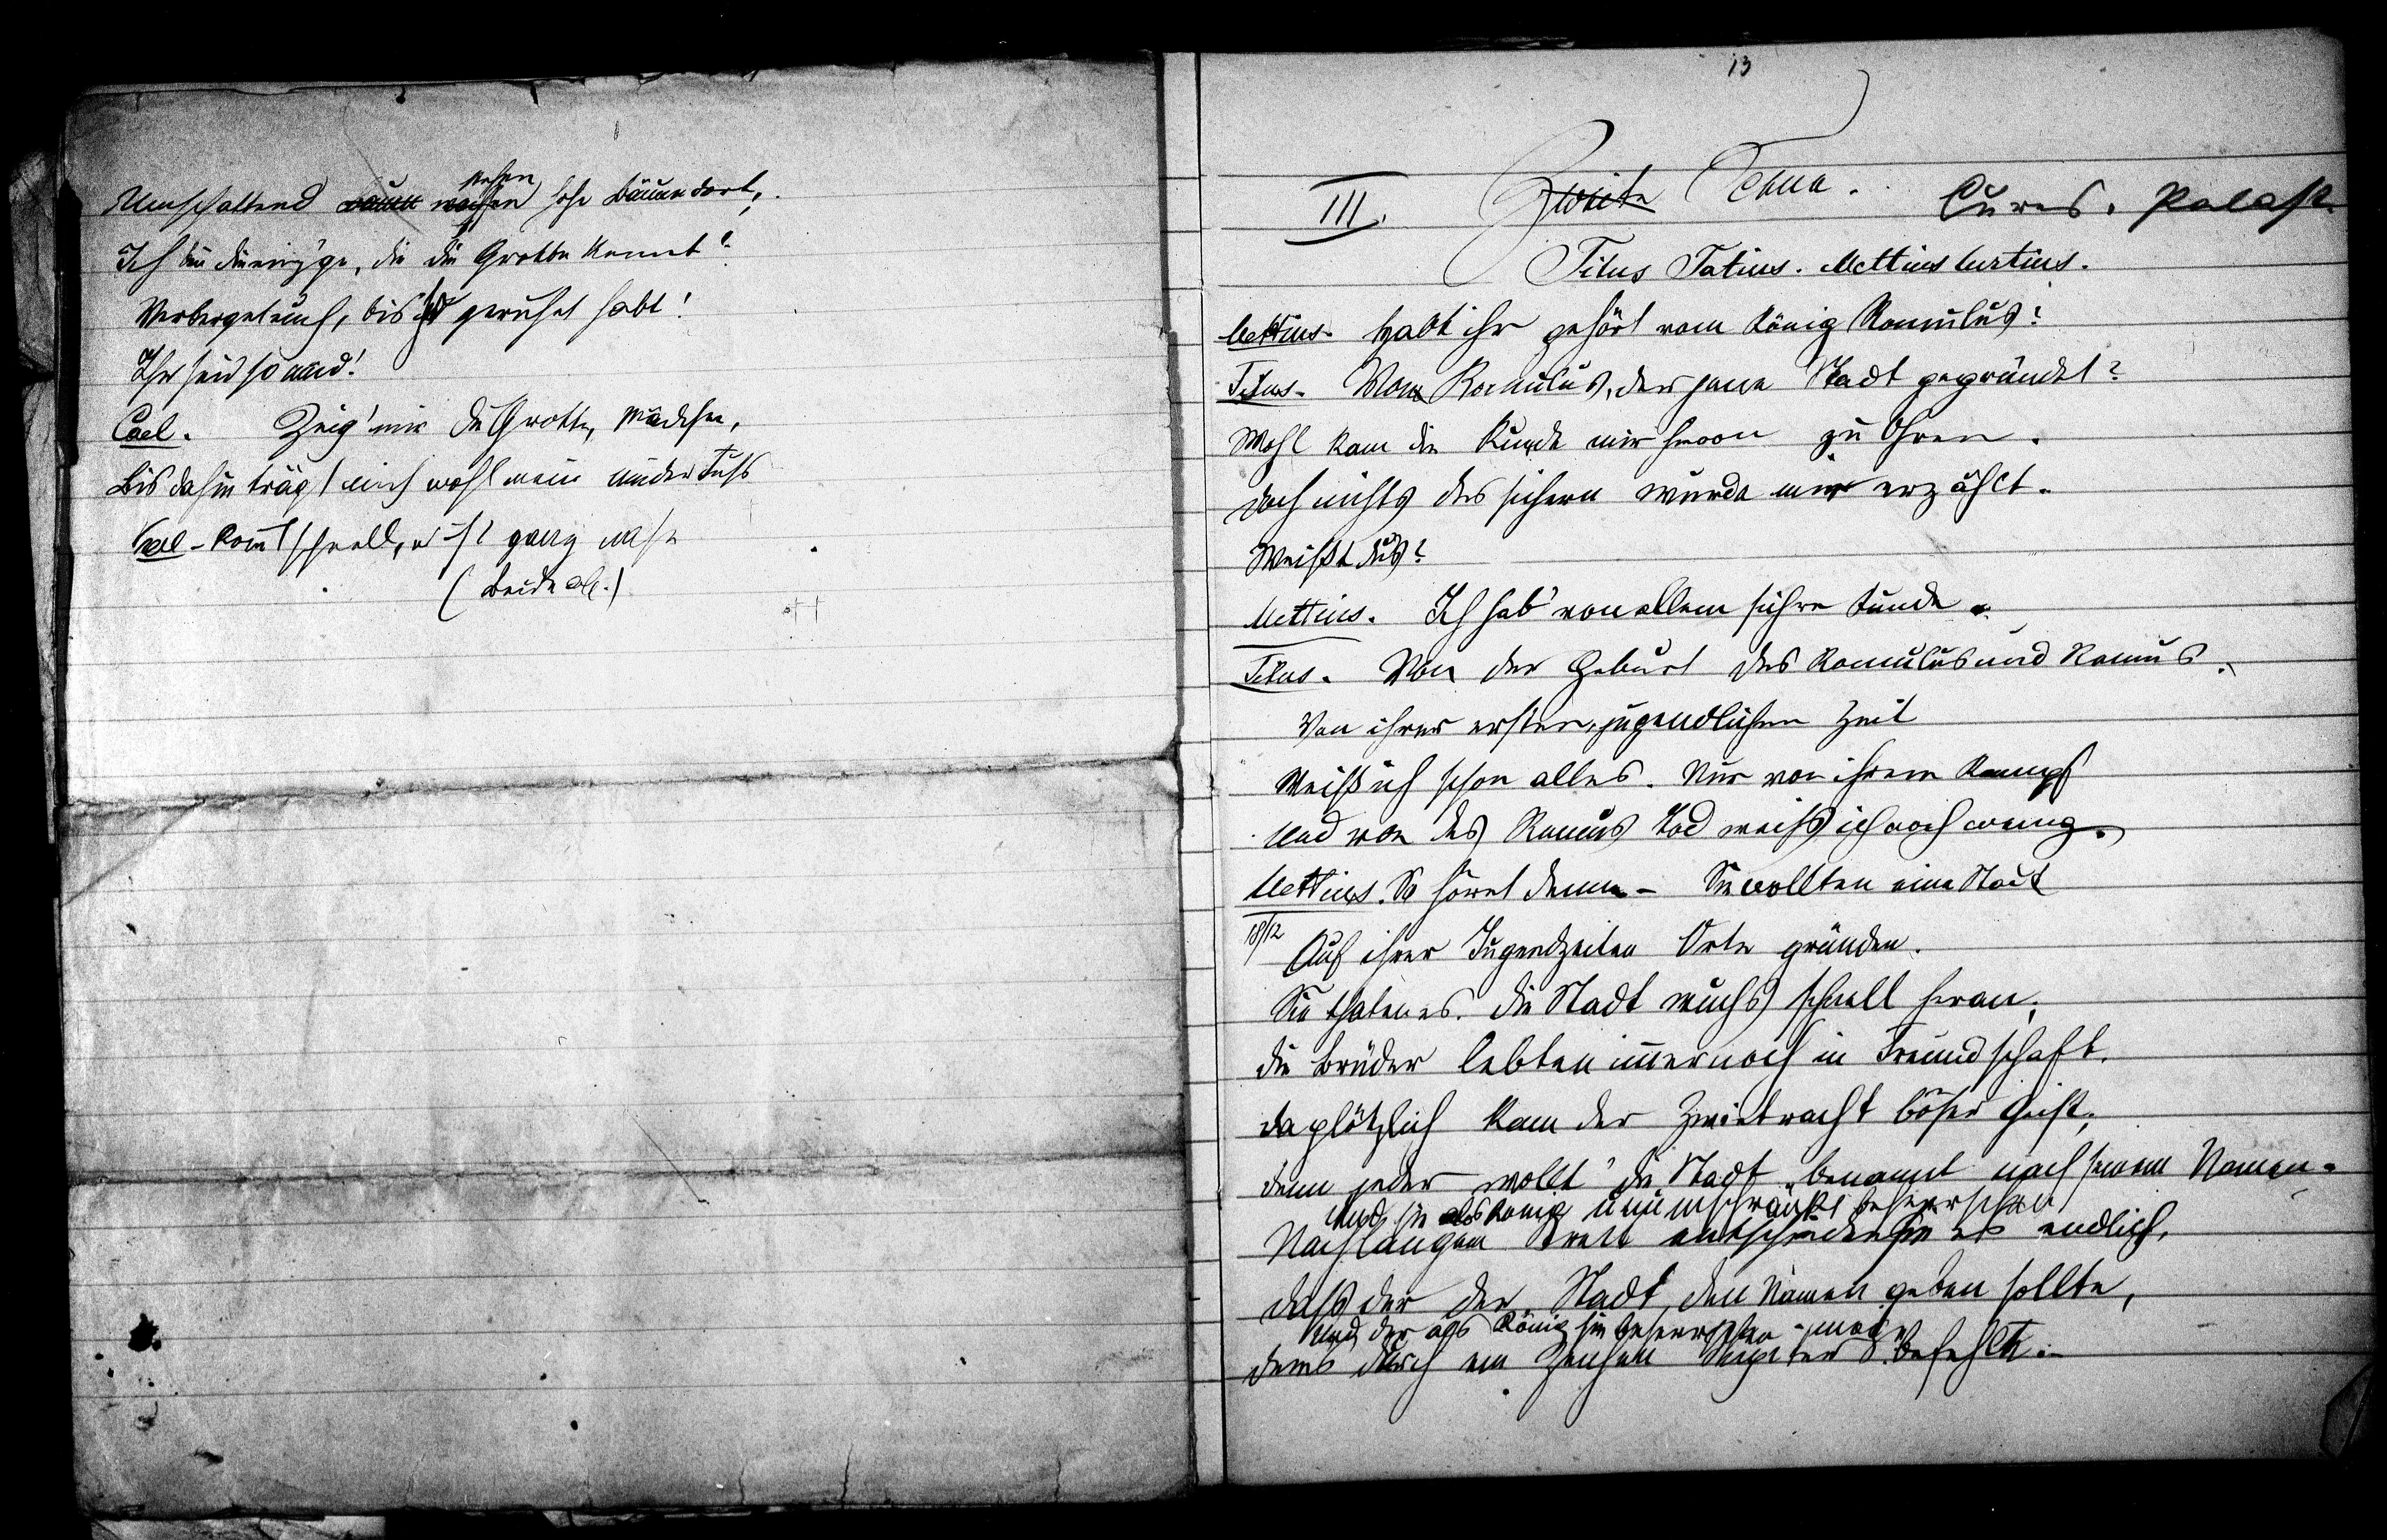 Umschattend stehen hohe Bäume dort,
Ich bin die einz'ge, die die Grotte kennt!
Verberget euch, bis ihr geruhet habt!
Ihr seid so müd!
Cael. Zeig' mir die Grotte, Mädchen,
Bis dahin trägt mich wohl mein müder Fuß
Kommt schnell, es ist ganz nahe
(Beide ab.)
13
III. Zweite Scene. Cures. Palast.
Titus Tatius. Mettius Curtius.
Mettius. Habt ihr gehört vom König Romulus?
Titus. Vom Romulus, der jene Stadt gegründet?
Wohl kam die Kunde mir hievon zu Ohren.
Doch nichts des sichern wurde mir erzählt.
Weißt du's?
Mettius. Ich hab' von allem sichre Kunde.
Titus. Von der Geburt des Romulus und Remus.
Von ihrer ersten, jugendlichen Zeit
Weiß ich schon alles. Nur von ihrem Kampf
Und von des Remus Tod weiß ich noch wenig.
Mettius. So höret denn - Sie wollten eine Stadt
18/12
Auf ihrer Jugendzeiten Orte gründen.
Sie thaten es. Die Stadt wuchs schnell heran,
Die Brüder lebten immer noch in Freundschaft.
Da plötzlich kam der Zwietracht böser Geist,
Denn jeder wollt' die Stadt benannt nach seinem Namen.
Und sie als König unumschränkt beherrschen
Nach langem Streit entschieden sie es endlich,
Daß der der Stadt den Namen geben sollte,
Und der als König sie beherrschen
Dems durch ein Zeichen Jupiter befehlt.